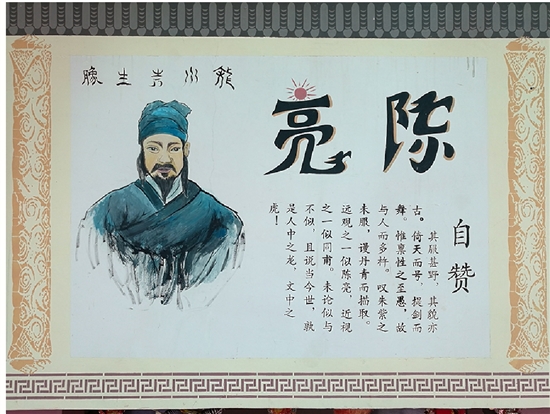 龍川先生像
陈亮
自赞
其服甚野，其貌亦
古。倚天而号，提剑而
舞。惟禀性之至愚，故
与人而多忤。叹朱紫之
未服，谩丹青而描取。
远观之一似陈亮，近视
之一似同甫。未论似与
不似，且说当今世，孰
是人中之龙，文中之
虎！